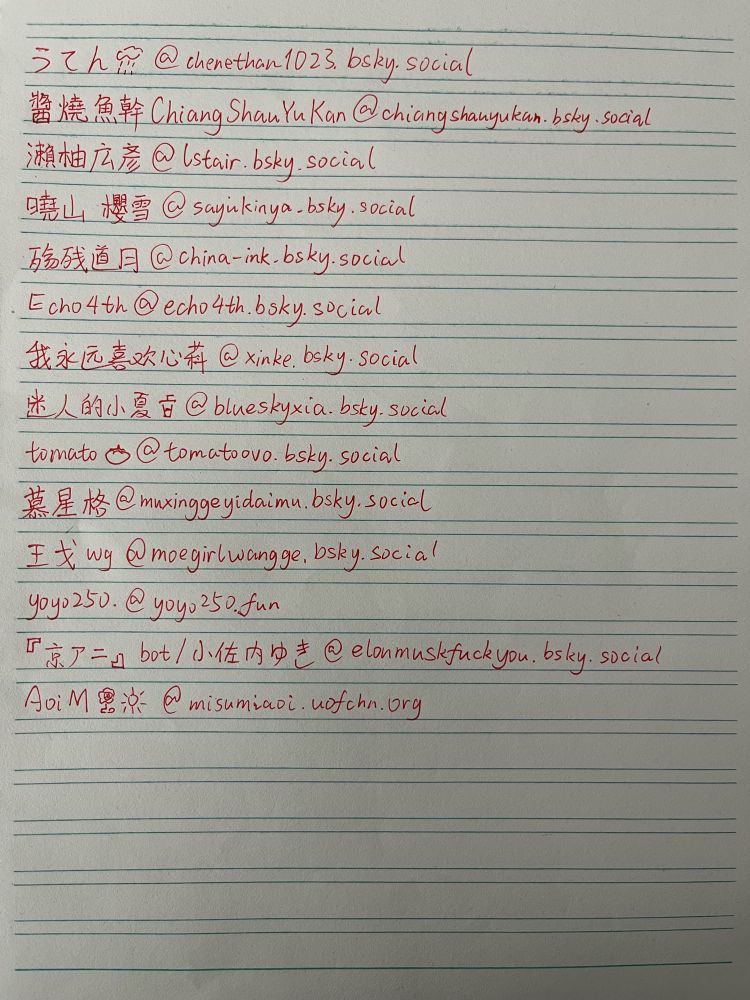 うてん🌧 @chenethan1023.bsky.social
醬燒魚幹 ChiangShauYuKan @chiangshauyukan.bsky.social
瀨柚広彥 @lstair.bsky.social
曉山 櫻雪 @sayukinya.bsky.social
殇残道月 @china-ink.bsky.social
Echo4th @echo4th.bsky.social
我永远喜欢心莉 @xinke.bsky.social
迷人的小夏旨 @blueskyxia.bsky.social
tomato🍅 @tomatoovo.bsky.social
慕星格 @muxinggeyidaimu.bsky.social
王戈 wg @moegirlwangge.bsky.social
yoyo250. @yoyo250.fun
『京アニ』bot/小佐内ゆき @elonmuskfuckyou.bsky.social
AoiM @misumiaoi.uofchn.org